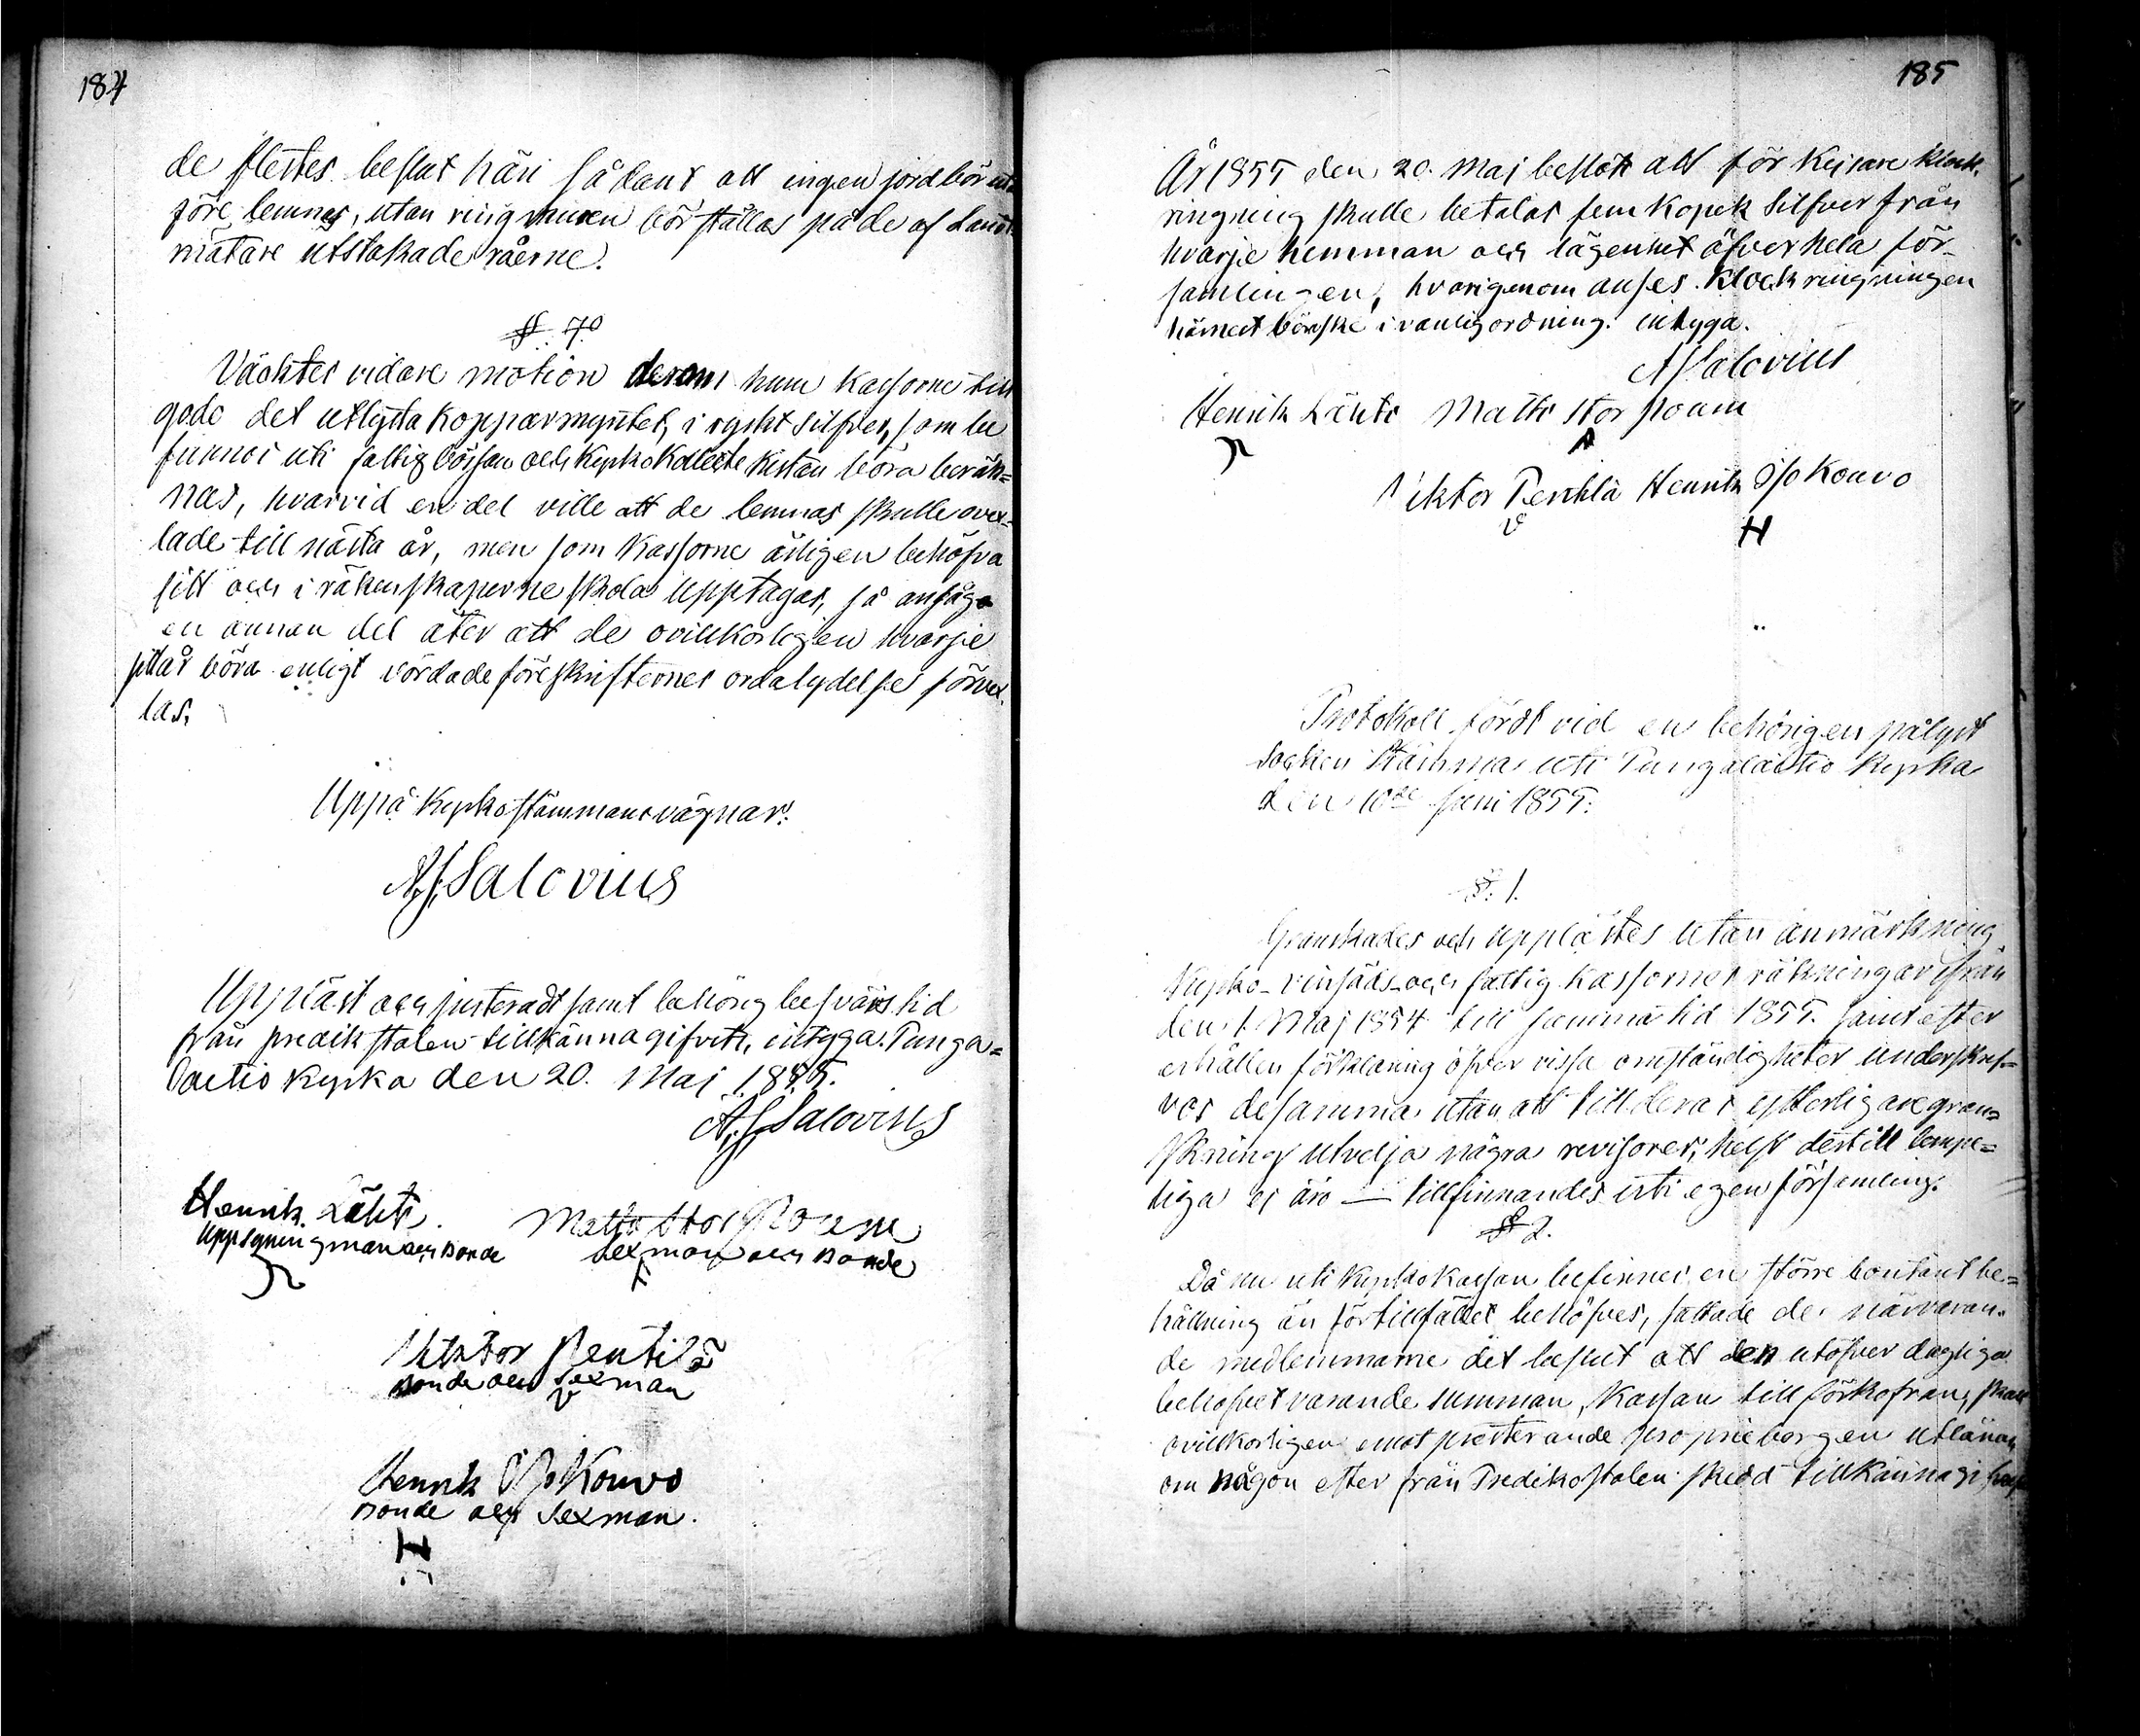 184
de flestes beslut häri sådant att ingen jord bör ut
före lemnas, utan ringmuren bör ställas på de af Landt
mätare utstakade råerne.
§. 7o
Väcktes vidare motion derom huru kassorne till
godo det utlysta kopparmyntet, i ryskt silfver, som be
finnes uti fattigbössan och Kyrko Kollecte Kistan böra beräk=
nas, hvarvid en del ville att de lemnas skulle ovex-
lade till nästa år, men som kassorne årligen behöfva
sitt och i räkenskaperne skola upptagas, så ansågo
en annan del åter att de ovillkorligen hvarje
år böra enligt vördade föreskrifternes ordalydelse förvex
las.
Uppå Kyrkostämmans vägnar:
A.J. Salovius
Uppläst och justeradt samt behörig besvärs tid
från predikstolen tillkännagifvits, intyga. Punga=
laitio kyrka den 20. Maj 1855.
A.J. Salovius
Henrik Lähti
Uppsyningman och Bonde
Matts Storpoum
Sexman och Bonde
Viktor Penttilä
Bonde och Sexman
V
Henrik Ojo Kouvo
Bonde och Sexman.
H
185
År 1855 den 20. Maj beslöts att för Kejsare klock.
ringning skulle betalas fem kopek Silfver från
hvarje hemman och lägenhet öfver hela för-
samlingen, hvarigenom anses klockringningen
härmed börs ske i vanlig ordning. intyga.
A Salovius
Henrik Lähti Matts Storpoum
Viktor Penttilä Henrik Ojo Kouvo
V H
Protokoll fördt vid en behörigen pålyst
Socken Stämma uti Pungalaitio Kyrka
den 10de Juni 1855.
§. 1.
Granskades och upplästes utan anmärkning
Kyrko- vinsäds- och fattig kassornes räkningar ifrån
den 1. Maj 1854 till samma tid 1855. samt efter
erhållen förklaring öfver vissa omständigheter underskref=
vos desamma utan att till deras ytterligare gran=
skning utvelja några revisorer; helst dertill lempe=
liga ej äro — tillfinnandes uti egen församling.
§ 2.
Då nu uti Kyrkokassan befinnes en större contant be=
hållning än för tillfället behöfves, fattade de närvaran-
de medlemmarne det beslut att den utöfver dagliga
behofvet varande summan, Kassan till förkofran, skall
ovillkorligen emot presterande proprieborgen utlånas
om någon efter från Predikostolen skedd tillkännagifvan